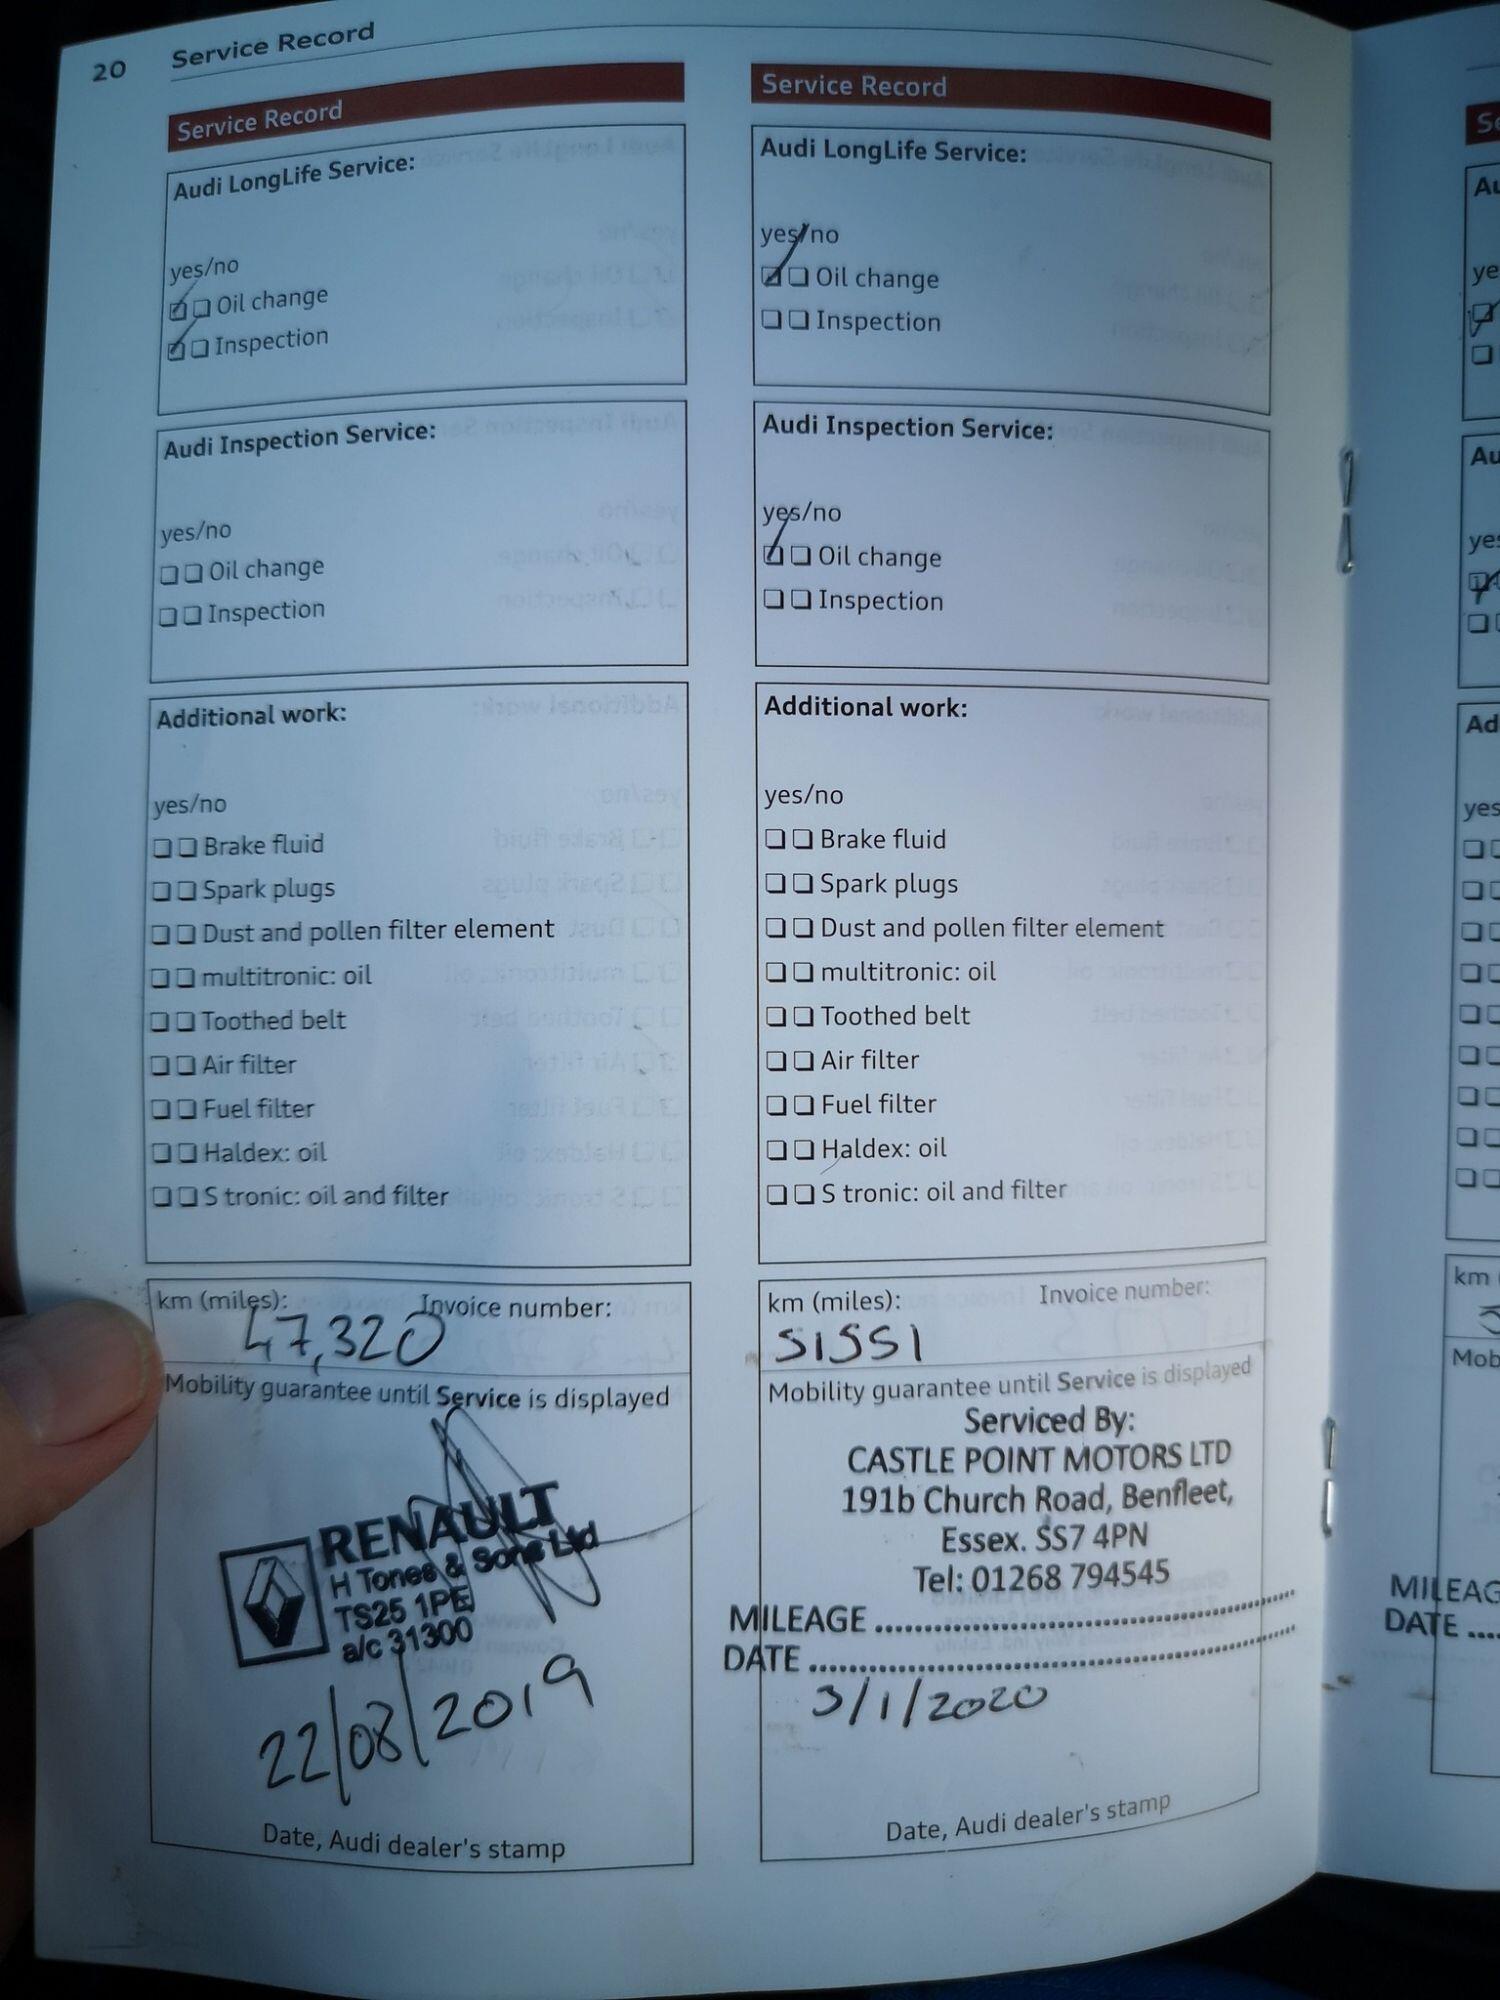 20 Service Record
Service Record
Audi LongLife Service:
yes/no
Oil change
Inspection
Audi Inspection Service:
yes/no
Oil change
Inspection
Additional work:
yes/no
Brake fluid
Spark plugs
Dust and pollen filter element
multitronic: oil
Toothed belt
Air filter
Fuel filter
Haldex: oil
S tronic: oil and filter
km (miles): Invoice number:
47,320
Mobility guarantee until Service is displayed
RENAULT
H Tones & Sons Ltd
TS25 1PE
a/c 31300
22/08/2019
Date, Audi dealer's stamp
Service Record
Audi LongLife Service:
yes/no
Oil change
Inspection
Audi Inspection Service:
yes/no
Oil change
Inspection
Additional work:
yes/no
Brake fluid
Spark plugs
Dust and pollen filter element
multitronic: oil
Toothed belt
Air filter
Fuel filter
Haldex: oil
S tronic: oil and filter
km (miles): Invoice number:
51551
Mobility guarantee until Service is displayed
Serviced By:
CASTLE POINT MOTORS LTD
191b Church Road, Benfleet,
Essex. SS7 4PN
Tel: 01268 794545
MILEAGE
DATE
3/1/2020
Date, Audi dealer's stamp
km
MILEAG
DATE